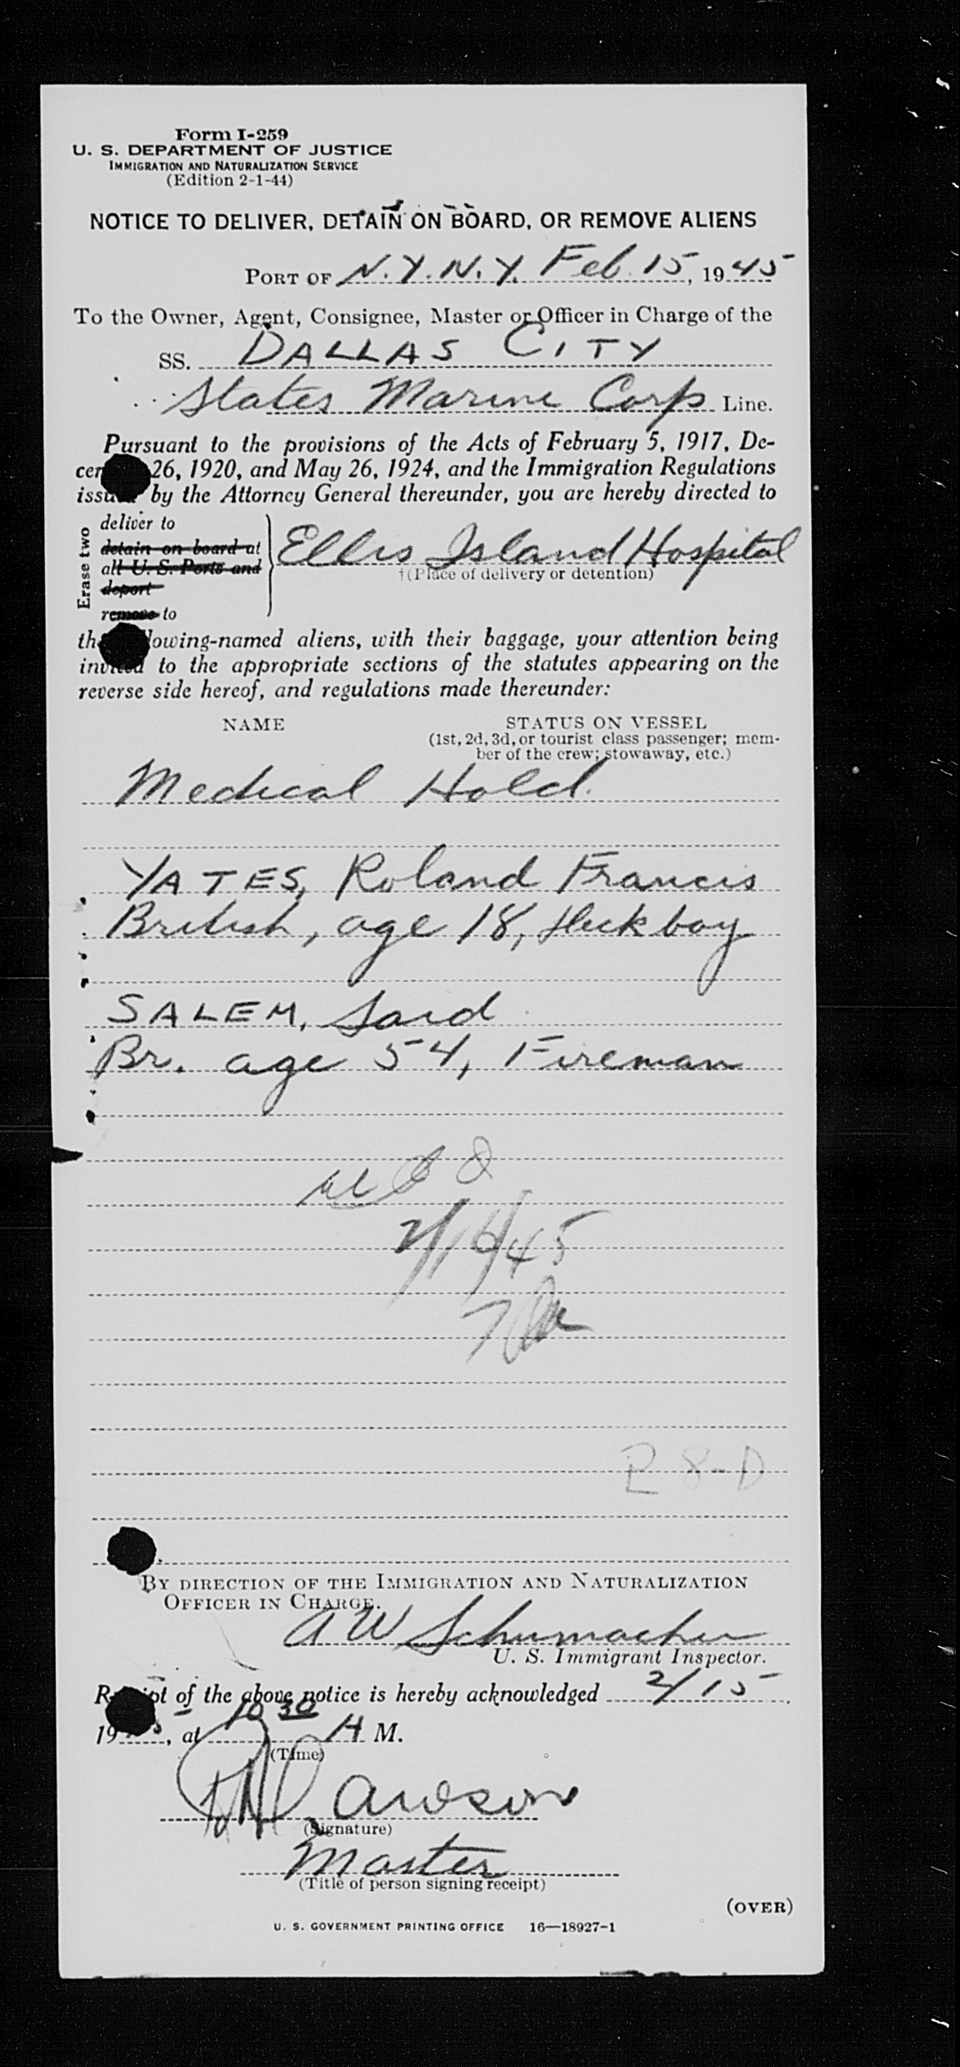 Form I-259
U. S. DEPARTMENT OF JUSTICE
IMMIGRATION AND NATURALIZATION SERVICE
(Edition 2-1-44)
NOTICE TO DELIVER, DETAIN ON BOARD, OR REMOVE ALIENS
PORT OF N.Y. N.Y. Feb. 15, 1945
To the Owner, Agent, Consignee, Master or Officer in Charge of the
SS. DALLAS CITY
States Marine Corp Line.
Pursuant to the provisions of the Acts of February 5, 1917, De-
26, 1920, and May 26, 1924, and the Immigration Regulations
issued by the Attorney General thereunder, you are hereby directed to
Erase two
deliver to
detain on board at
all U. S. Ports and
deport
remove to
Ellis Island Hospital
†(Place of delivery or detention)
the following-named aliens, with their baggage, your attention being
invited to the appropriate sections of the statutes appearing on the
reverse side hereof, and regulations made thereunder:
NAME STATUS ON VESSEL
(1st, 2d, 3d, or tourist class passenger; mem-
ber of the crew; stowaway, etc.)
Medical Hold.
YATES, Roland Francis
British, age 18, Deck boy
SALEM, Said
Br. age 54, Fireman
2/16/45
R 8-D
BY DIRECTION OF THE IMMIGRATION AND NATURALIZATION
OFFICER IN CHARGE.
A W Schumacher
U. S. Immigrant Inspector.
Receipt of the above notice is hereby acknowledged 2/15
1945, at 10 30 A M.
(Time)
Dawson
(Signature)
Master
(Title of person signing receipt)
(OVER)
U. S. GOVERNMENT PRINTING OFFICE 16—18927-1